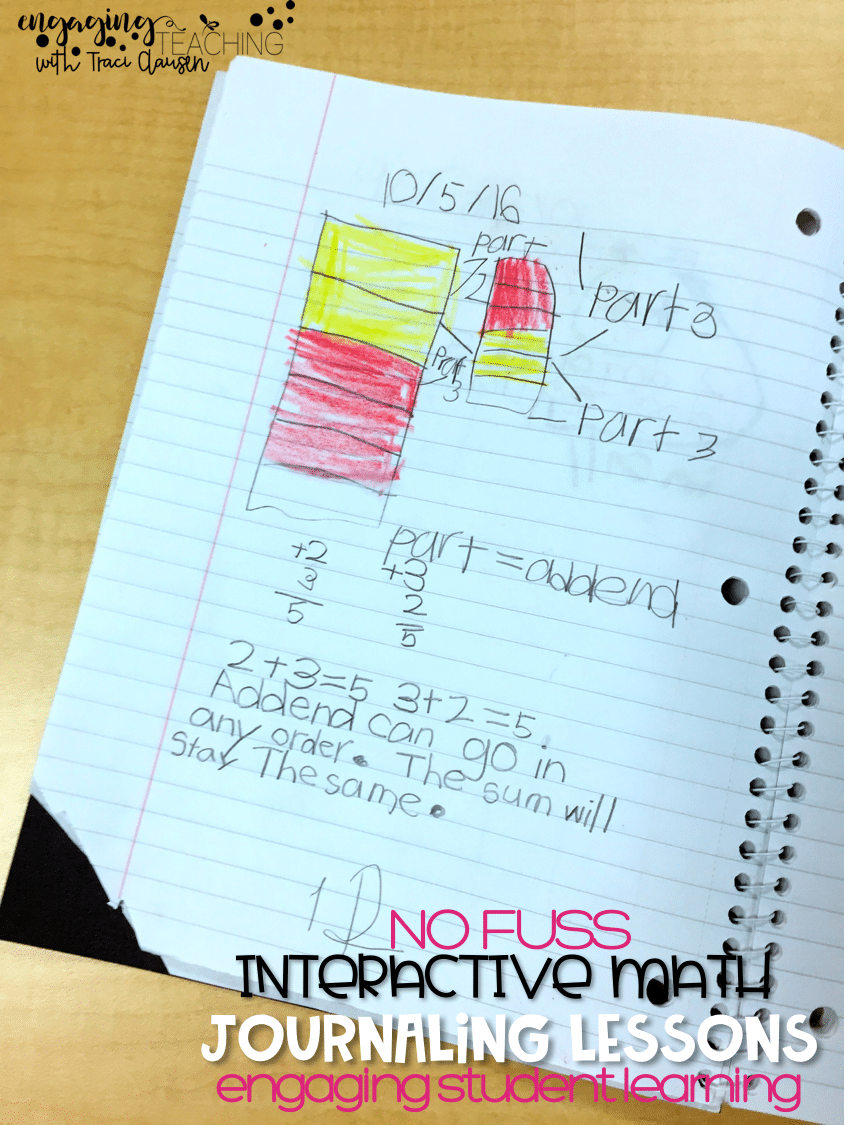 engaging
TEACHING
with Traci Clausen
10/5/16
part
2
part 3
Part
3
part 3
part = addend
+2
3
5
+3
2
5
2+3=5 3+2=5.
Addend can go in
any order. The sum will
stay The same.
NO FUSS
INTERACTIVE MATH
JOURNALING LESSONS
engaging student learning